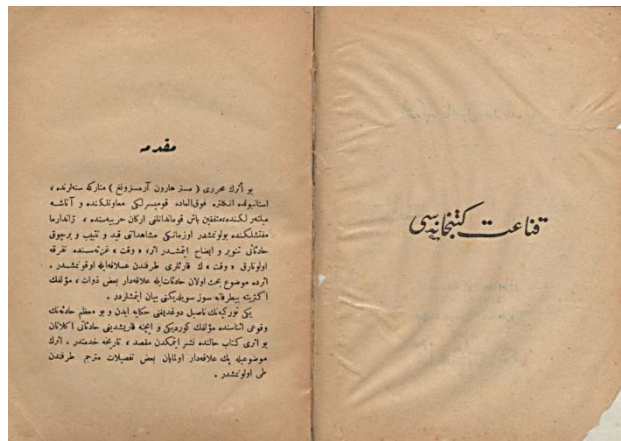 قناعت کتبخانه‌سی
مقدمه
بو اثرك محرری ( مستر هارون آرمسترونغ ) متاركه سنه‌لرنده ،
استانبولده انكلتره فوق‌العاده قوميسرلكی معاونلكنده و آتاشه
ميليتر لكنده،متفقين باش قوماندانلغی اركان حربيه‌سنده ، ژاندارما
مفتشلكنده بولونمشدر اوزمانكی مشاهداتی قيد و تثبيت و برچوق
حادثاتی تنوير و ايضاح ايتمشدر اثر، « وقت » غزته‌سنده تفرقه
اولونارق « وقت » ك قارئلری طرفندن علاقه‌ايله اوقونمشدر .
اثرده موضوع بحث اولان حادثات‌ايله علاقه‌دار بعض ذوات ، مؤلفك
اكثريتله بيطرفانه سوز سويله‌ديكنی بيان ايتمشلردر .
يكی توركيه‌نك ناصيل دوغديغنی حكايه ايدن و بو معظم حادثه‌نك
وقوعی اثناسنده مؤلفك كورديكی و ايچنه قاريشديغی حادثاتی آكلاتان
بو اثری كتاب حالنده نشر ايتمكدن مقصد ، تاريخه خدمتدر . اثرك
موضوعيله پك علاقه‌دار اولمايان بعض تفصيلات مترجم طرفندن
طی اولونمشدر .